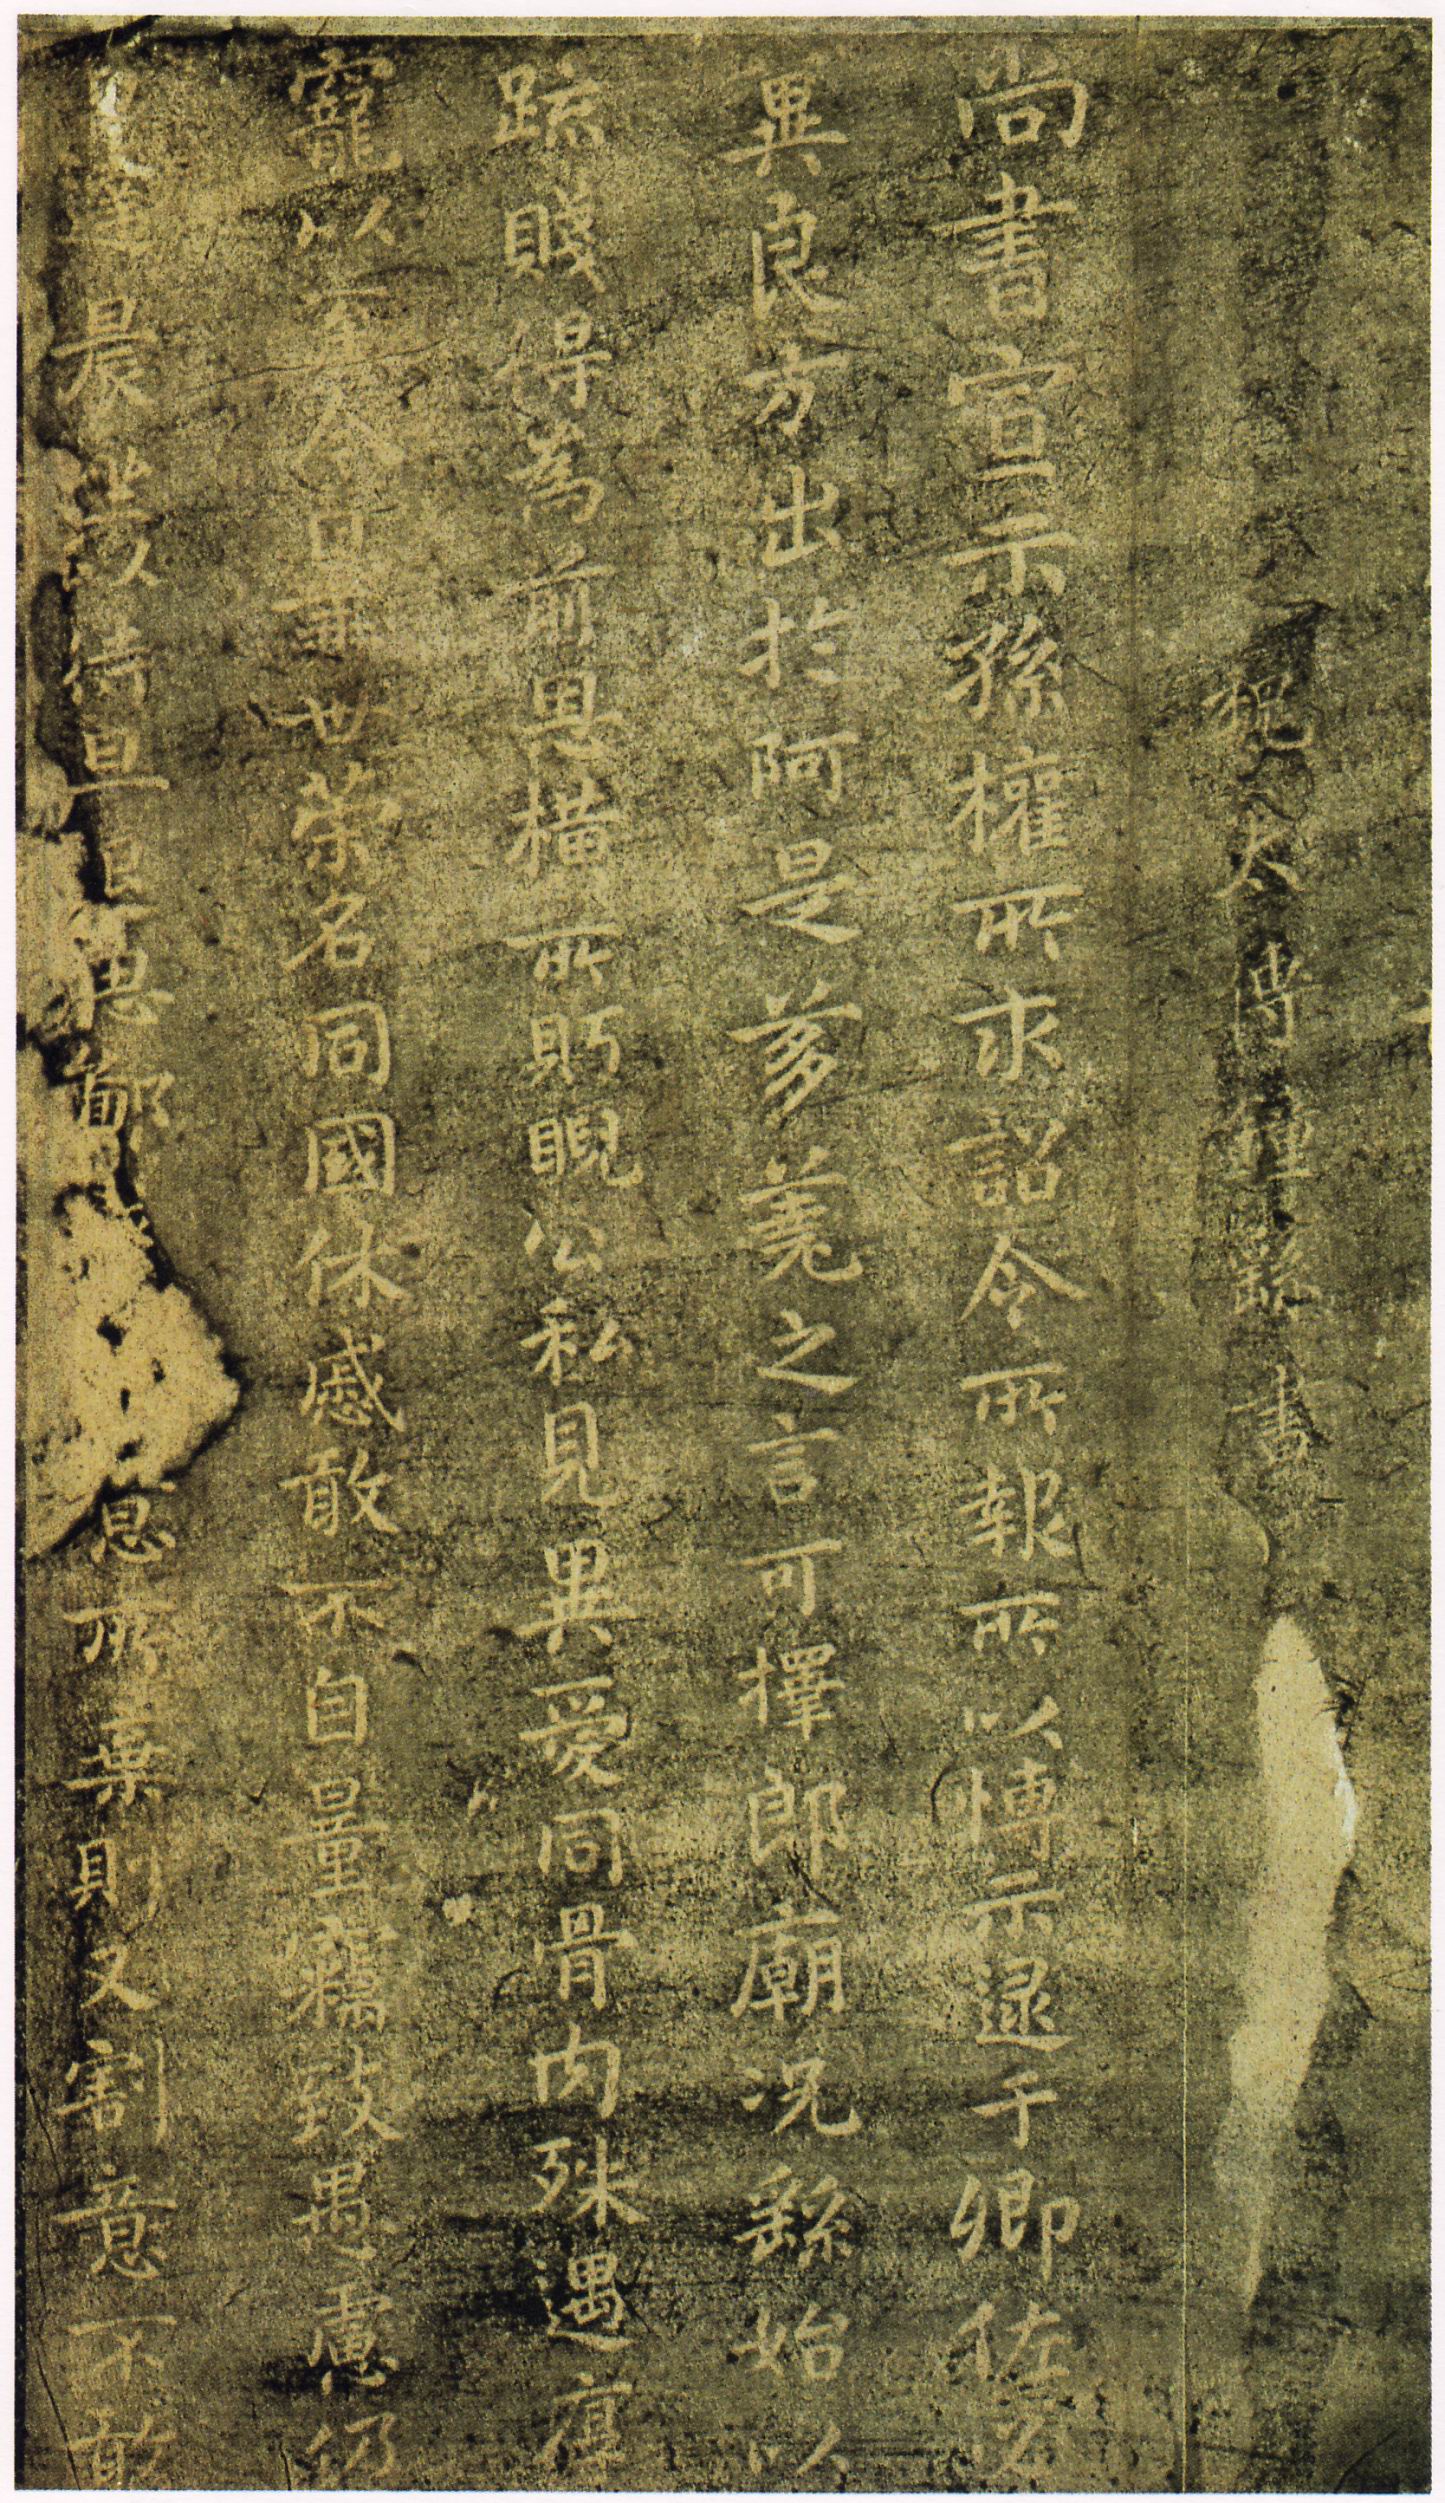 魏太傅鍾繇書
尚書宣示孫權所求詔令所報所以博示逮于卿佐必
異良方出於阿是芻蕘之言可擇郎廟況繇始以
疏賤得為前恩橫所盻睨公私見異愛同骨肉殊遇厚
寵以至今日再世榮名同國休慼敢不自量竊致愚慮仍
日達晨坐以待旦退思鄙 意所棄則又割意不敢